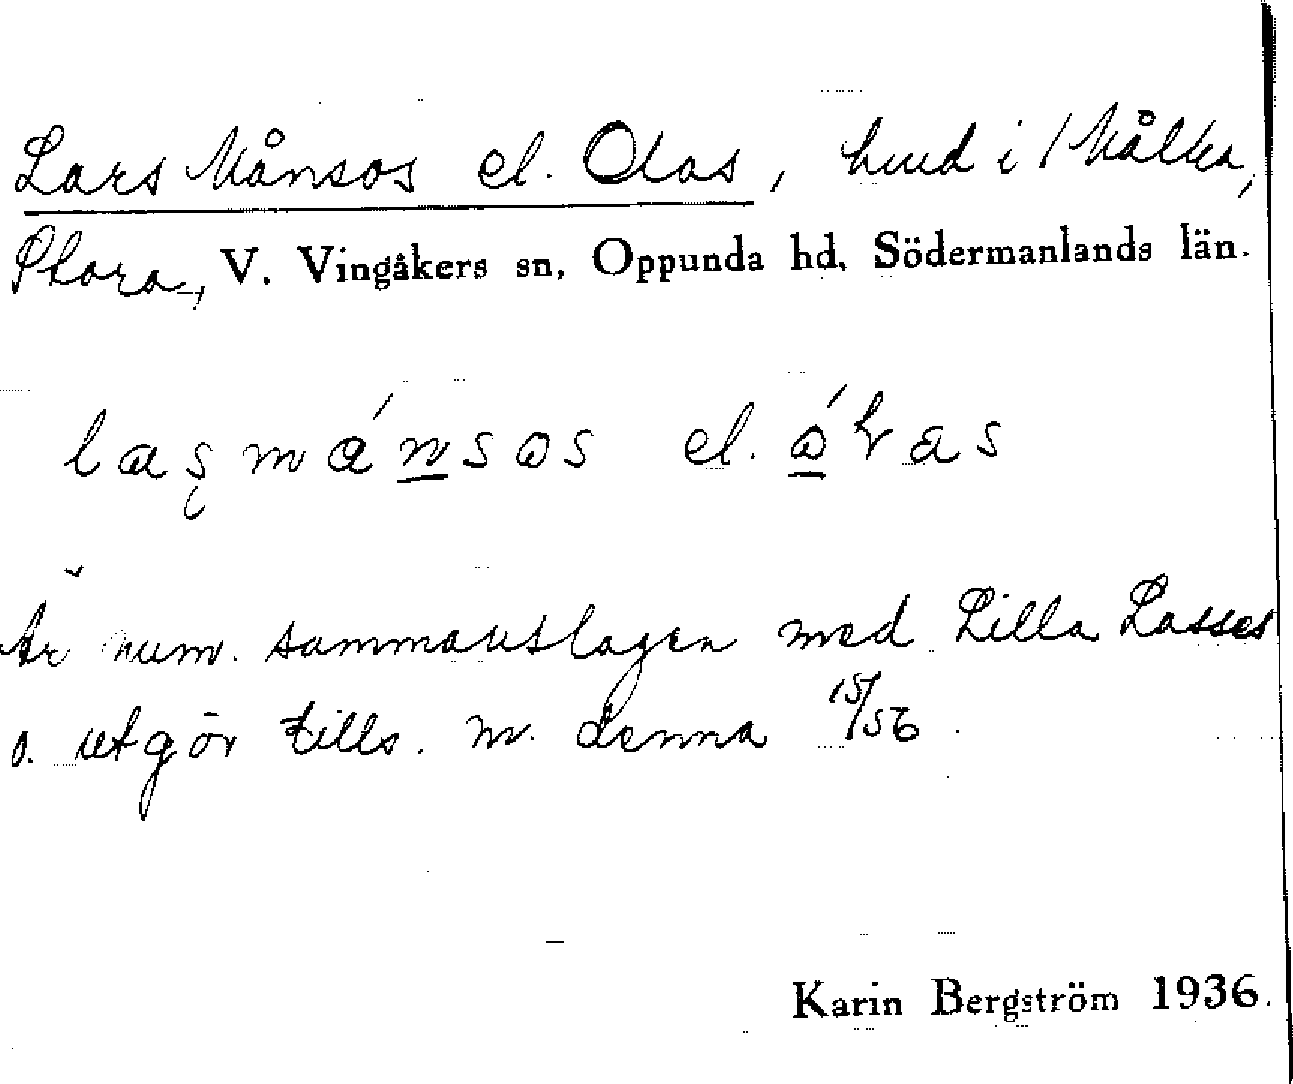 Lars Månsos el. Olas, hmd i Målka,
Stora, V. Vingåkers sn, Oppunda hd, Södermanlands län.
el.
Är num. sammanslagen med Lilla Lasses
o. utgör tills. m. denna 15/56.
Karin Bergström 1936.